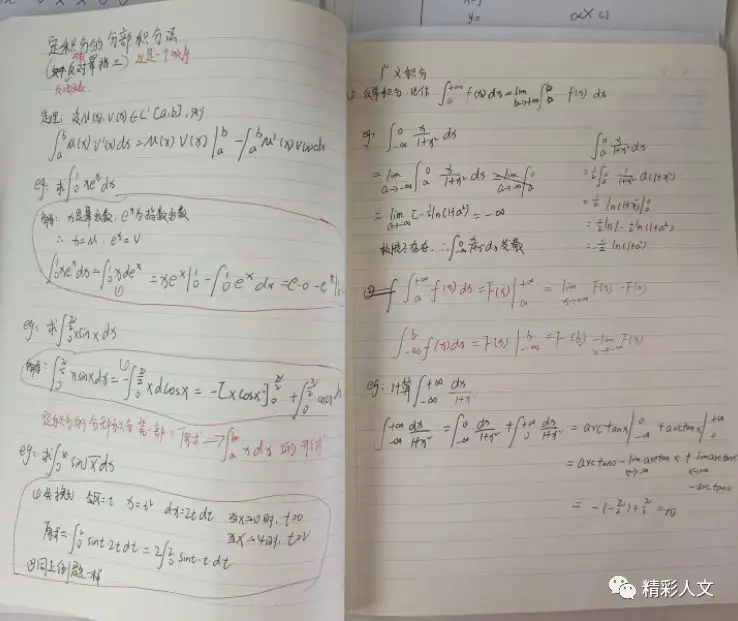 y=
定积分的分部积分法
(反对幂指三) 这是一个顺序
定理: 设u(x), v(x)∈C'[a,b], 则
∫_a^b u(x) v'(x)dx = u(x) v(x)|_a^b - ∫_a^b u'(x) v(x)dx
eg: 求∫_0^1 xe^x dx
解: x是幂函数, e^x为指数函数
∴ x=u, e^x=v
∫_0^1 xe^x dx = ∫_0^1 x de^x = xe^x|_0^1 - ∫_0^1 e^x dx = e-0-e^x|_0^1
(1)
eg: 求∫_0^{π/2} x sinx dx
解: ∫_0^{π/2} x sinx dx = -∫_0^{π/2} x dcosx = -[x cosx]_0^{π/2} + ∫_0^{π/2} cosx
定积分的分部积分第一部: 原式→∫_a^b 的形式
eg: 求 sin√x dx
①先换元 令√x=t x=t² dx=2t dt 当x=0时, t=0
原式=∫_0^2 sint·2t dt = 2∫_0^2 sint·t dt
②同上例题一样
广义积分
记作 ∫_a^{+∞} f(x) dx = lim_{b→+∞} ∫_a^b f(x) dx
eg: ∫_{-∞}^0 x/(1+x²) dx
= lim_{a→-∞} ∫_a^0 x/(1+x²) dx
= lim_{a→-∞} [-½ln(1+a²)] = -∞
故极限不存在, ∴∫ dx发散
∫_a^0 x/(1+x²) dx
=½∫_a^0 1/(1+x²) d(1+x²)
=½ ln(1+x²)|_a^0
=½ln1-½ln(1+a²)
=-½ ln(1+a²)
② ∫_a^{+∞} f(x) dx = F(x)|_a^{+∞} = lim_{x→+∞} F(x) - F(a)
∫_{-∞}^b f(x) dx = F(x)|_{-∞}^b = F(b) - lim_{x→-∞} F(x)
eg: 计算∫_{-∞}^{+∞} dx/(1+x²)
∫_{-∞}^{+∞} dx/(1+x²) = ∫_{-∞}^0 dx/(1+x²) + ∫_0^{+∞} dx/(1+x²) = arctanx|_{-∞}^0 + arctanx|_0^{+∞}
= arctan0 - lim_{x→-∞} arctanx + lim_{x→+∞} arctanx
- arctan0
= -(-π/2)+π/2 = π
精彩人文